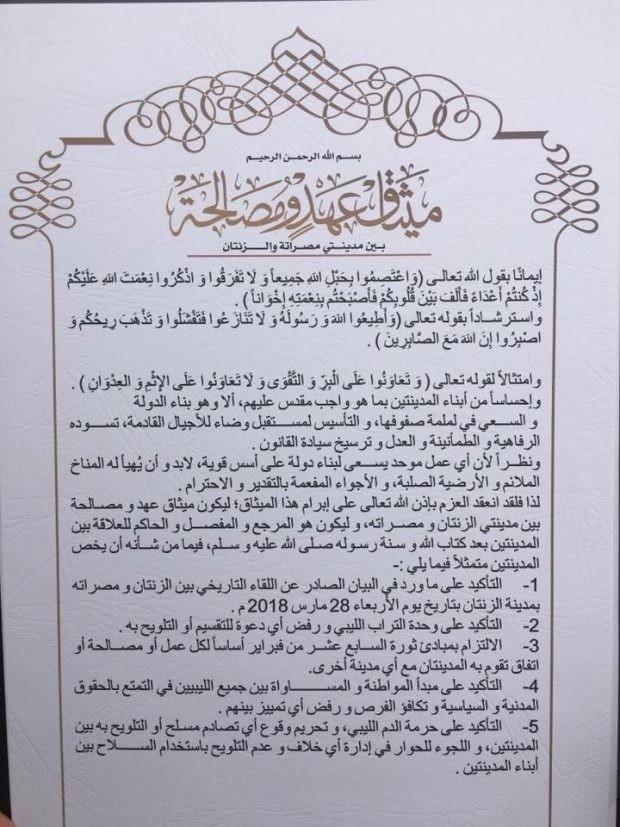 بسم الله الرحمن الرحيم
ميثاق عهدٍ ومصالحة
بين مدينتي مصراتة والزنتان
إيمانًا بقول الله تعالى (وَاعْتَصِمُوا بِحَبْلِ اللهِ جَمِيعاً وَ لَا تَفَرَّقُوا وَ اذْكُرُوا نِعْمَتَ اللهِ عَلَيْكُمْ
إِذْ كُنْتُمْ أَعْدَاءً فَأَلَّفَ بَيْنَ قُلُوبِكُمْ فَأَصْبَحْتُم بِنِعْمَتِهِ إِخْوَاناً ) .
واسترشاداً بقوله تعالى (وَأَطِيعُوا اللهَ وَ رَسُولَهُ وَ لَا تَنَازَعُوا فَتَفْشَلُوا وَ تَذْهَبَ رِيحُكُم وَ
اصْبِرُوا إِنَّ اللهَ مَعَ الصَّابِرِينَ ) .
وامتثالاً لقوله تعالى ( وَ تَعَاوَنُوا عَلَى الْبِرِّ وَ التَّقْوَى وَ لَا تَعَاوَنُوا عَلَى الإِثْمِ وَ العِدْوَانِ ) .
وإحساساً من أبناء المدينتين بما هو واجب مقدس عليهم، ألا وهو بناء الدولة
و السعي في لملمة صفوفها، و التأسيس لمستقبل وضاء للأجيال القادمة، تسوده
الرفاهية و الطمأنينة و العدل و ترسيخ سيادة القانون .
ونظراً لأن أي عمل موحد يسعى لبناء دولة على أسس قوية، لابد و أن يُهيأ له المناخ
الملائم و الأرضية الصلبة، و الأجواء المفعمة بالتقدير و الاحترام .
لذا فلقد انعقد العزم بإذن الله تعالى على إبرام هذا الميثاق؛ ليكون ميثاق عهد و مصالحة
بين مدينتي الزنتان و مصراته، و ليكون هو المرجع و المفصل و الحاكم للعلاقة بين
المدينتين بعد كتاب الله و سنة رسوله صلى الله عليه و سلم، فيما من شأنه أن يخص
المدينتين متمثلاً فيما يلي :-
1- التأكيد على ما ورد في البيان الصادر عن اللقاء التاريخي بين الزنتان و مصراته
بمدينة الزنتان بتاريخ يوم الأربعاء 28 مارس 2018 م .
2- التأكيد على وحدة التراب الليبي و رفض أي دعوة للتقسيم أو التلويح به .
3- الالتزام بمبادئ ثورة السابع عشر من فبراير أساساً لكل عمل أو مصالحة أو
اتفاق تقوم به المدينتان مع أي مدينة أخرى.
4- التأكيد على مبدأ المواطنة و المساواة بين جميع الليبيين في التمتع بالحقوق
المدنية و السياسية و تكافؤ الفرص و رفض أي تمييز بينهم .
5- التأكيد على حرمة الدم الليبي، و تحريم وقوع أي تصادم مسلح أو التلويح به بين
المدينتين، و اللجوء للحوار في إدارة أي خلاف و عدم التلويح باستخدام السلاح بين
أبناء المدينتين .